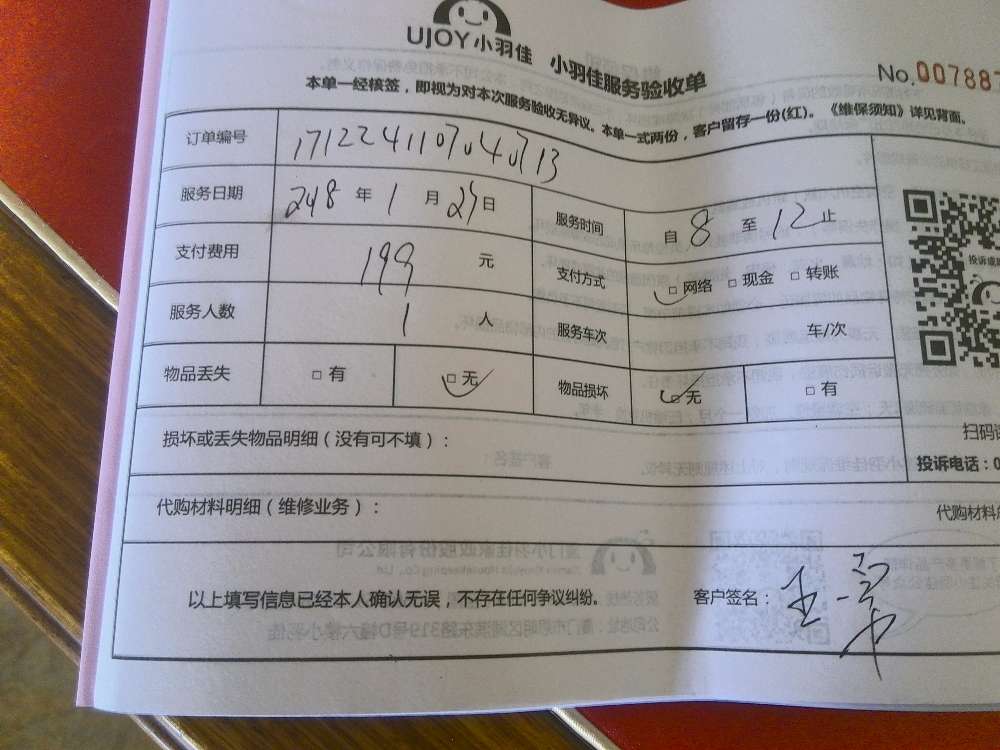 UJOY小羽佳 小羽佳服务验收单
No.007887
本单一经核签，即视为对本次服务验收无异议。本单一式两份，客户留存一份(红)。《维保须知》详见背面。
订单编号
服务日期 年 1 月 日 服务时间 自 8 至 12 止
支付费用 199 元 支付方式 □网络 □现金 □转账
服务人数 1 人 服务车次 车/次
物品丢失 □有 □无 物品损坏 □无 □有
损坏或丢失物品明细（没有可不填）：
扫码
投诉电话：0
代购材料明细（维修业务）：
代购材料
以上填写信息已经本人确认无误，不存在任何争议纠纷。 客户签名：王